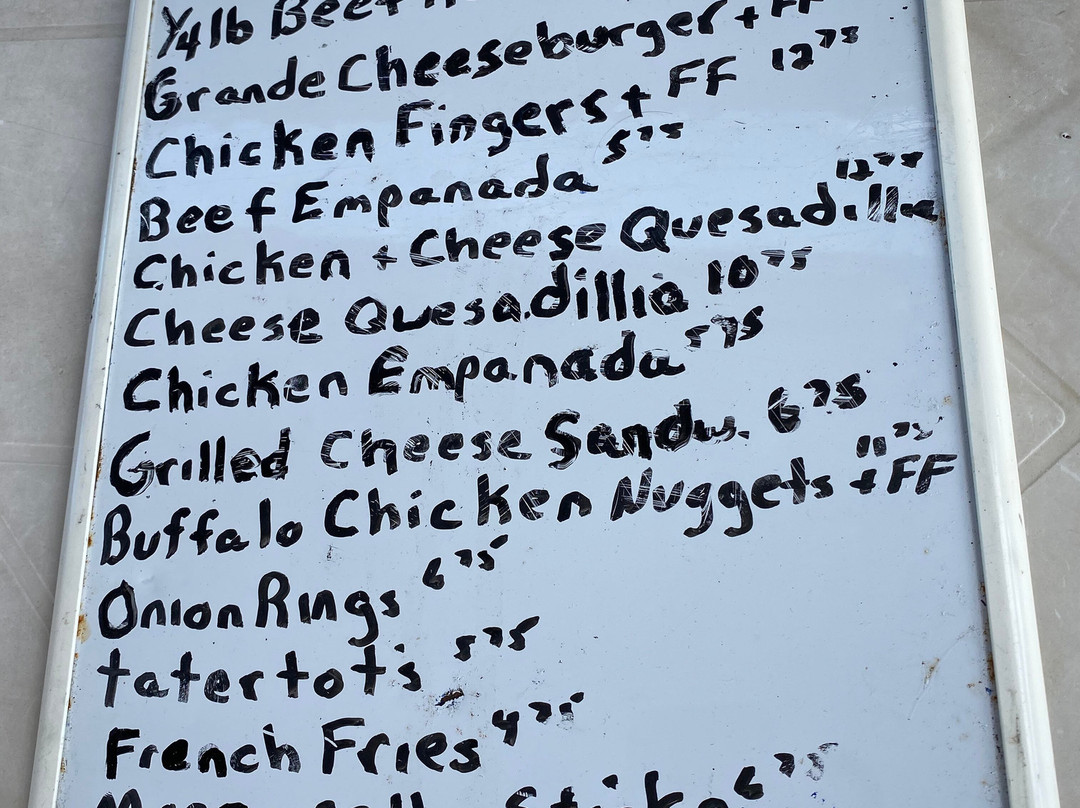 1/4 lb Beef
Grande Cheeseburger + FF
Chicken Fingers + FF 12 75
Beef Empanada 5 75
Chicken + Cheese Quesadillia 12 75
Cheese Quesadillia 10 75
Chicken Empanada 5 75
Grilled Cheese Sandw. 6 75
Buffalo Chicken Nuggets + FF 11 75
Onion Rings 6 75
tater tot's 5 75
French Fries 4 75
6 75